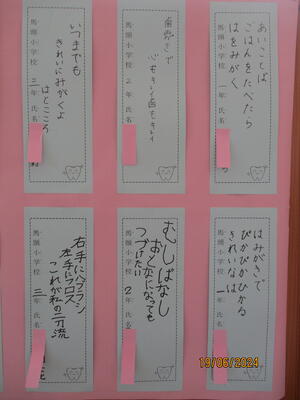 あいことば
ごはんをたべたら
はをみがく
馬頭小学校 一年 氏名
歯みがきで
心もキレイ歯もキレイ
馬頭小学校 2年 氏名
いつまでも
きれいにみがくよ
はとこころ
馬頭小学校 三年 氏名
はみがきで
ぴかぴかひかる
きれいなは
馬頭小学校 一年 氏名
むしばなし
おと女になっても
つづけたい
馬頭小学校 2年 氏名
右手にハブラシ
左手にフロス
これが私の二刀流
馬頭小学校 三年 氏名
19/06/2024